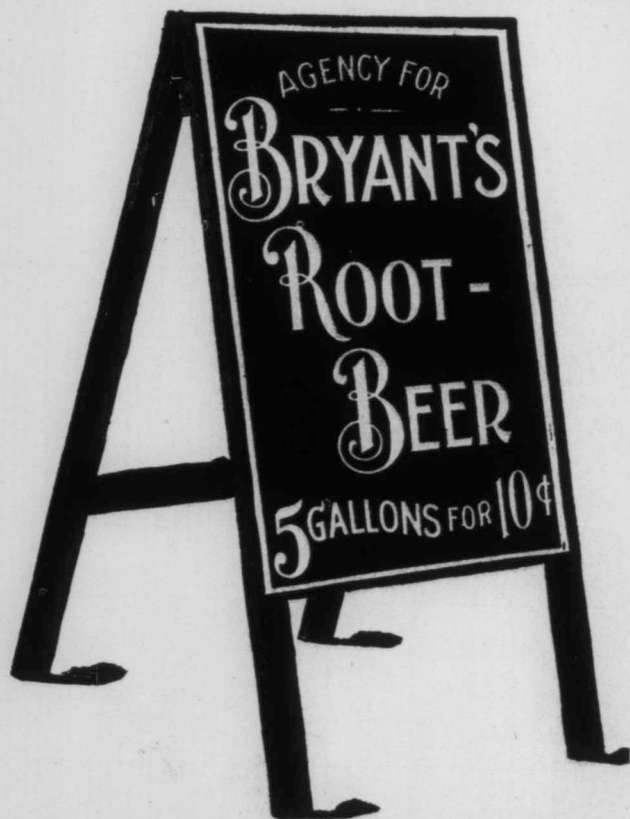 AGENCY FOR
BRYANT'S
ROOT-
BEER
5 GALLONS FOR 10¢